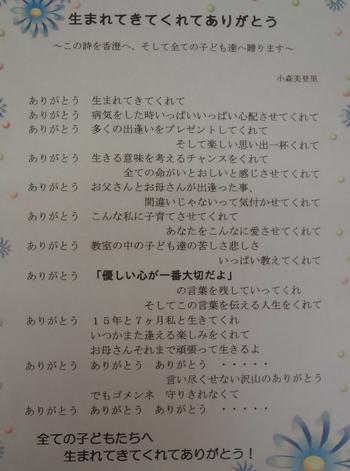 生まれてきてくれてありがとう
～この詩を香澄へ、そして全ての子ども達へ贈ります～
小森美登里
ありがとう　生まれてきてくれて
ありがとう　病気をした時いっぱいいっぱい心配させてくれて
ありがとう　多くの出逢いをプレゼントしてくれて
そして楽しい思い出一杯くれて
ありがとう　生きる意味を考えるチャンスをくれて
全ての命がいとおしいと感じさせてくれて
ありがとう　お父さんとお母さんが出逢った事、
間違いじゃないって気付かせてくれて
ありがとう　こんな私に子育てさせてくれて
あなたをこんなに愛させてくれて
ありがとう　教室の中の子ども達の苦しさ悲しさ
いっぱい教えてくれて
ありがとう　「優しい心が一番大切だよ」
の言葉を残していってくれ
そしてこの言葉を伝える人生をくれて
ありがとう　１５年と７ヶ月私と生きてくれ
いつかまた逢える楽しみをくれて
お母さんそれまで頑張って生きるよ
ありがとう　ありがとう　ありがとう　・・・・・
言い尽くせない沢山のありがとう
でもゴメンネ　守りきれなくて
ありがとう　ありがとう　ありがとう　・・・・・
全ての子どもたちへ
生まれてきてくれてありがとう！